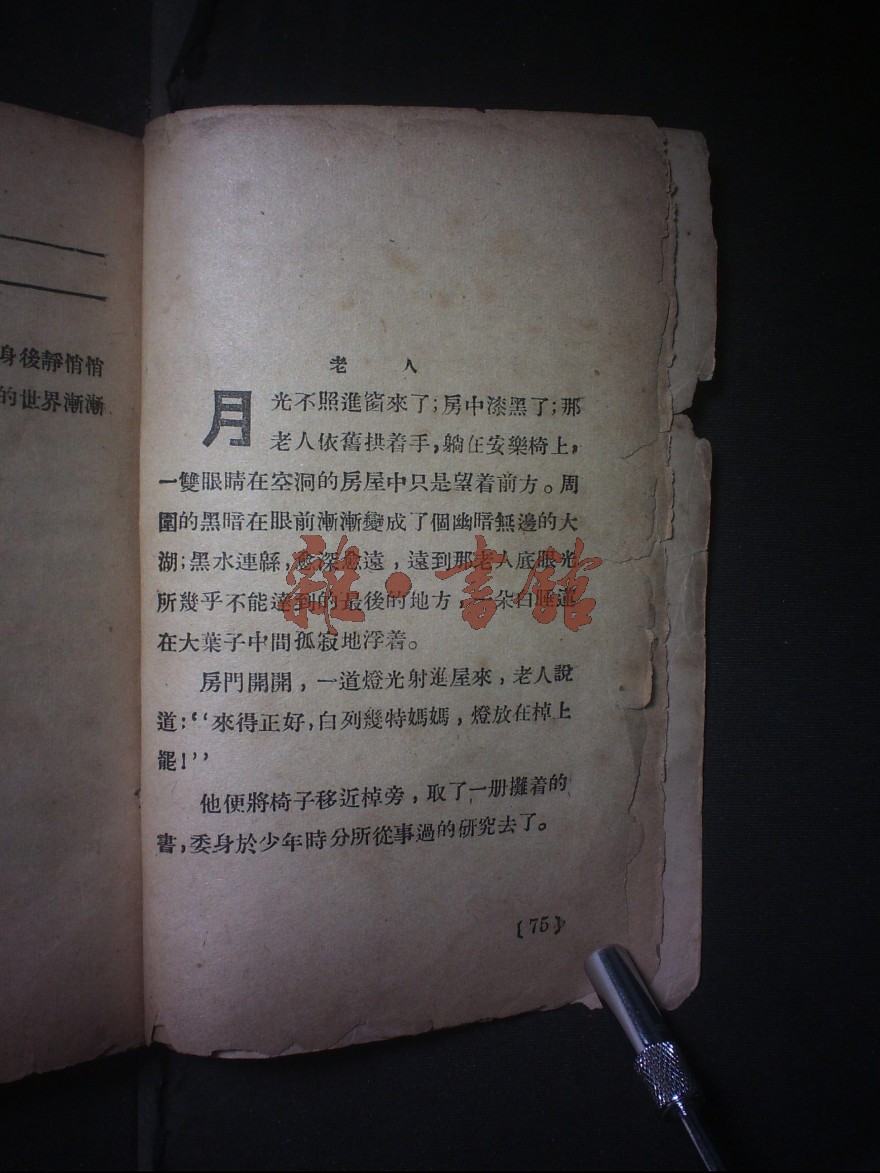 身後靜悄悄
的世界漸漸
老人
月光不照進窗來了;房中漆黑了;那
老人依舊拱着手,躺在安樂椅上,
一雙眼睛在空洞的房屋中只是望着前方。周
圍的黑暗在眼前漸漸變成了個幽暗無邊的大
湖;黑水連緜,愈深愈遠,遠到那老人底眼光
所幾乎不能達到的最後的地方,一朵白睡蓮
在大葉子中間孤寂地浮着。
房門開開,一道燈光射進屋來,老人說
道:“來得正好,白列幾特媽媽,燈放在棹上
罷!”
他便將椅子移近棹旁,取了一册攤着的
書,委身於少年時分所從事過的研究去了。
[75]
雜·書館